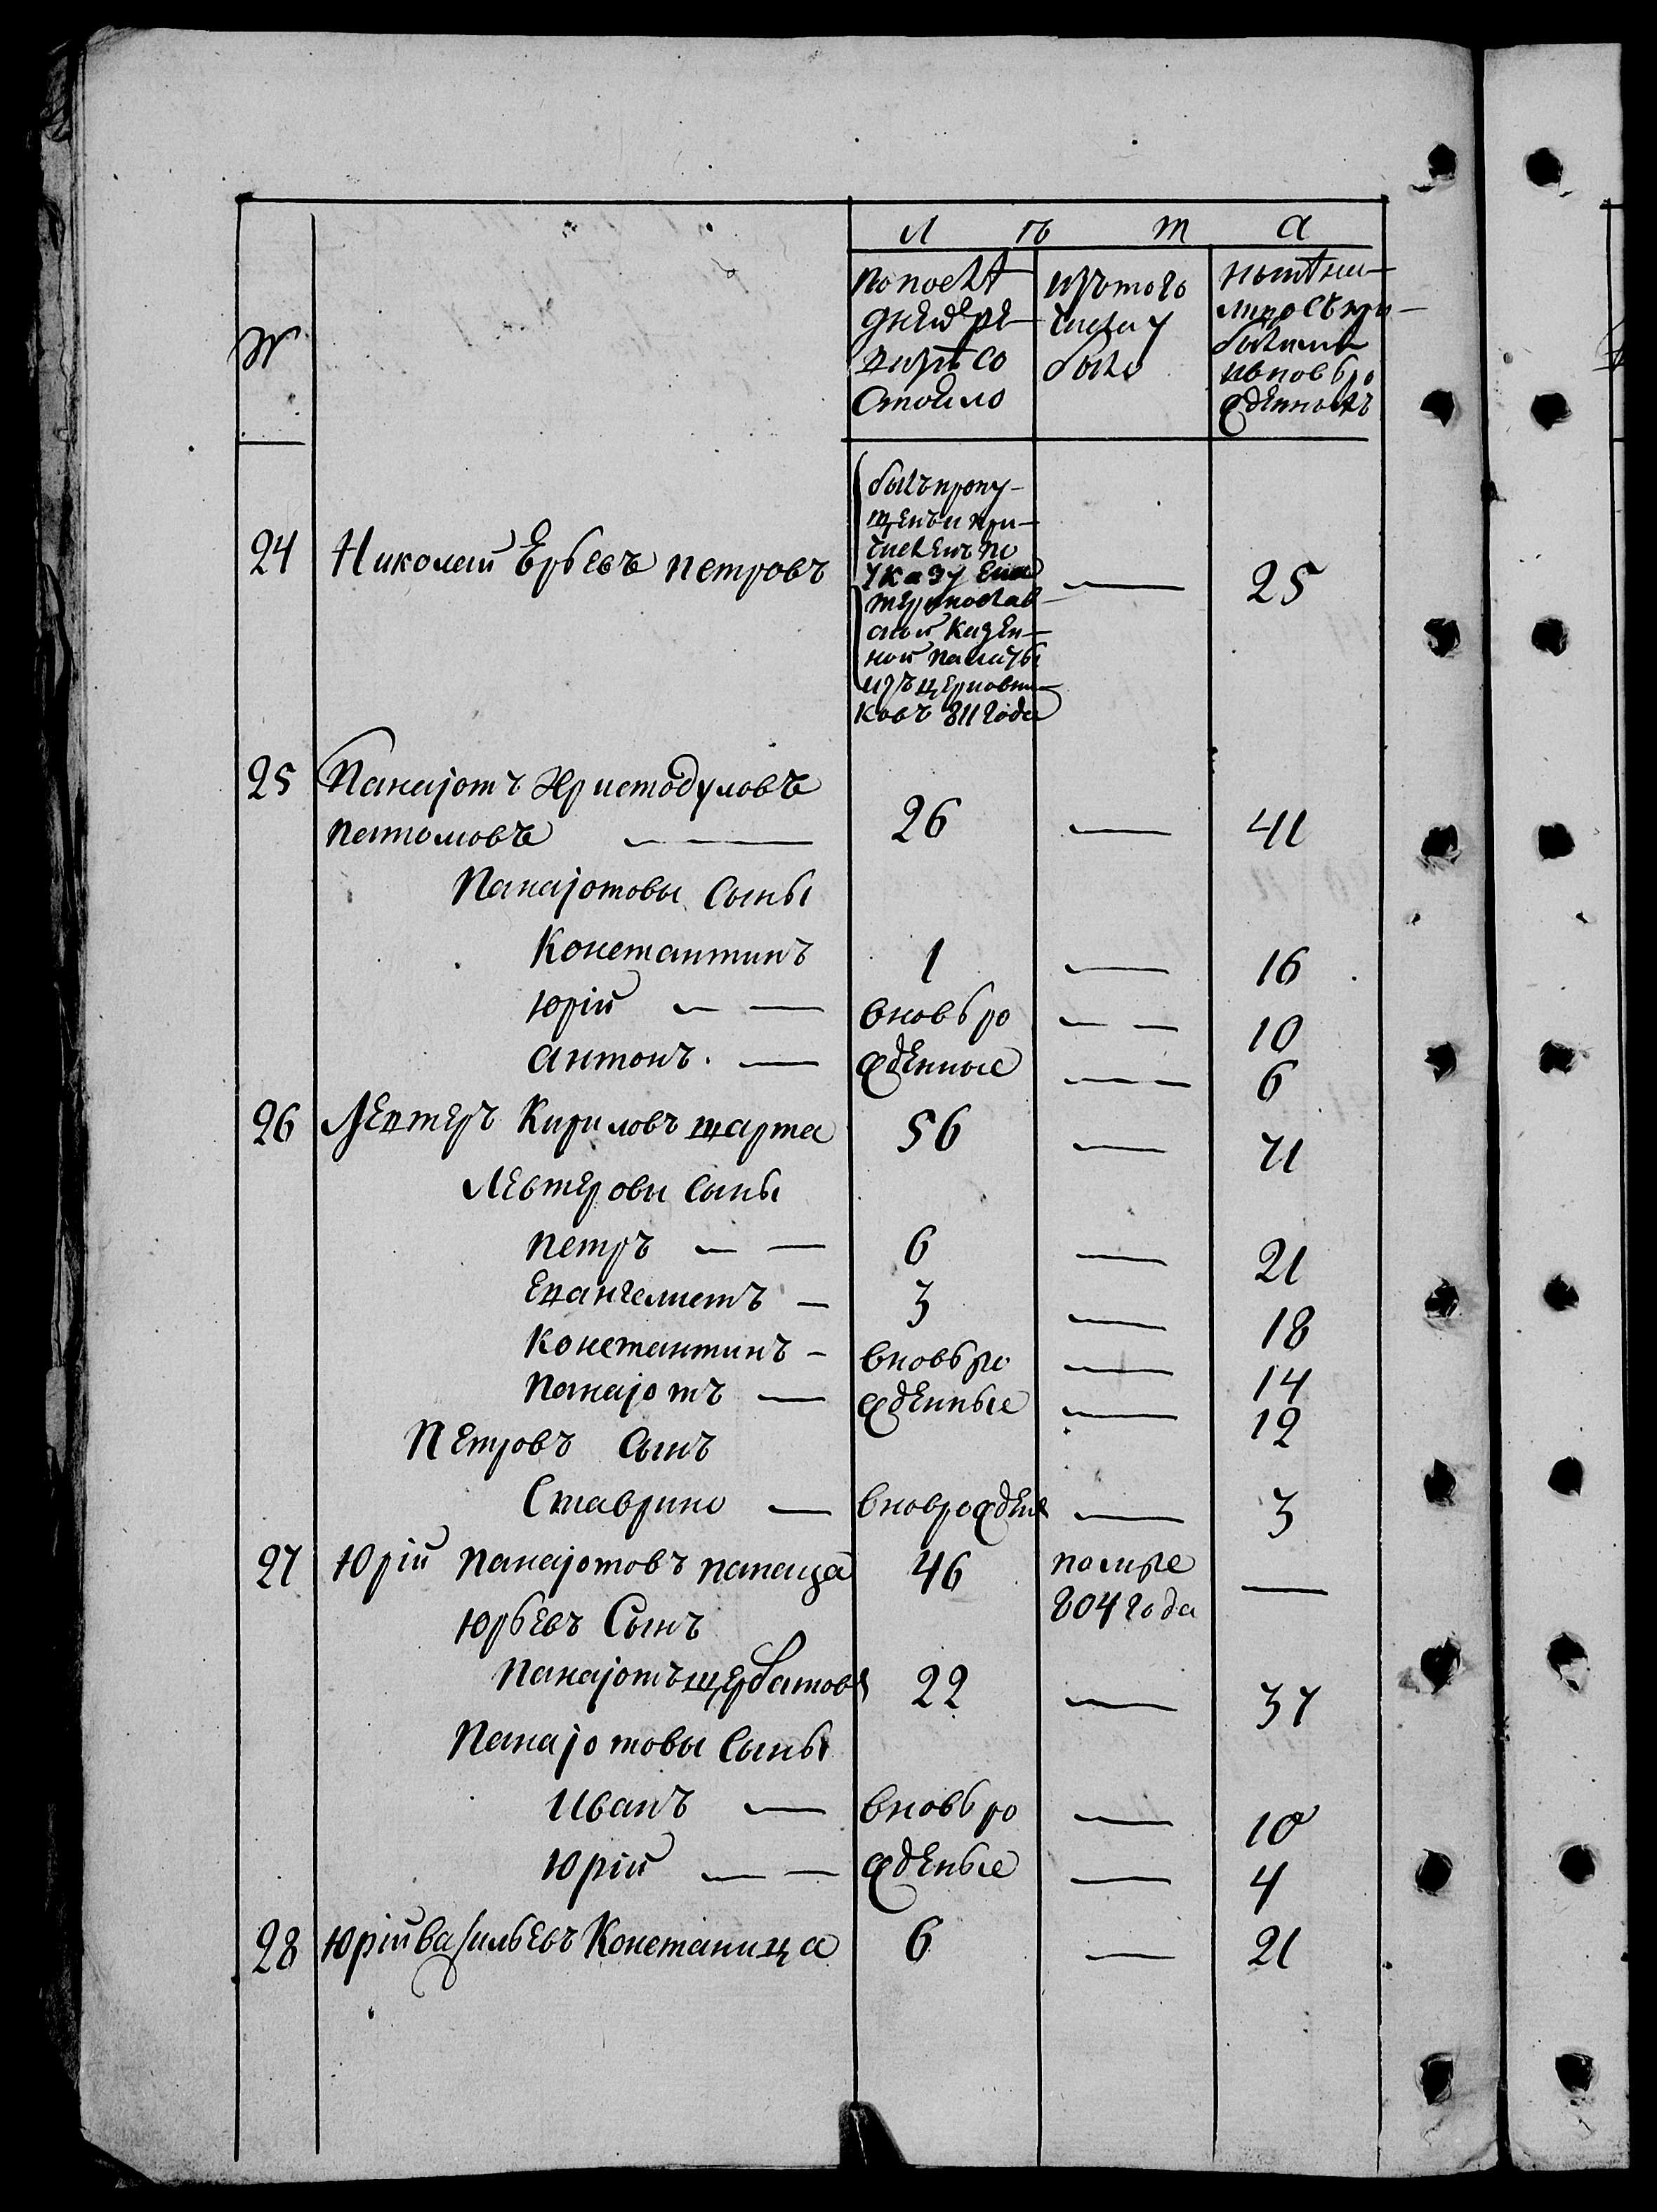 №
Л ѣ т а
по послѣ
дней ре
визіи со
стояло
изъ того
числа у
было
нынѣ на
лицо съ при
былыми
и вновь ро
жденныхъ
24 Николай Юрьевъ петровъ
былъ пропу
щенъ и при
численъ по
указу Ека
теринослав
ской казен
ной палаты
изъ церковни
ковъ 811 года — 25
25 Панаjотъ Христодуловъ
патомовъ — 26 — 41
Панаjотовы сыны
Константинъ 1 — 16
Юрій — — вновь ро — — 10
антонъ. — жденные — — 6
26 Левтеръ Кириловъ шарта 56 — 71
Левтеровы сыны
петръ — — 6 — 21
Евангелистъ — 3 — 18
Константинъ — вновь ро — 14
панаjотъ — жденные — 12
Петровъ сынъ
Ставрино — вноврожден — 3
27 Юрій панаjотовъ 46 помре
804 года —
Юрьевъ Сынъ
Панаjотъ щербатовъ 22 — 37
Панаjотовы сыны
Иванъ — вновь ро — 10
Юрій — — жденые — 4
28 Юрій васильевъ Констаница 6 — 21